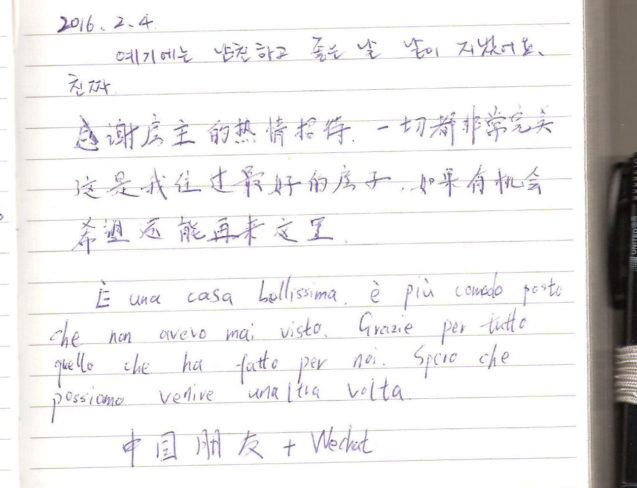 2016.2.4.
예기에는 남친하고 좋은 날 많이 지냈어요.
진짜.
感谢房主的热情招待.一切都非常完美
这是我住过最好的房子.如果有机会
希望还能再来这里.
È una casa bellissima. è più comodo posto
che non avevo mai visto. Grazie per tutto
quello che ha fatto per noi. Spero che
possiamo venire unaltra volta.
中国朋友 + Wechat